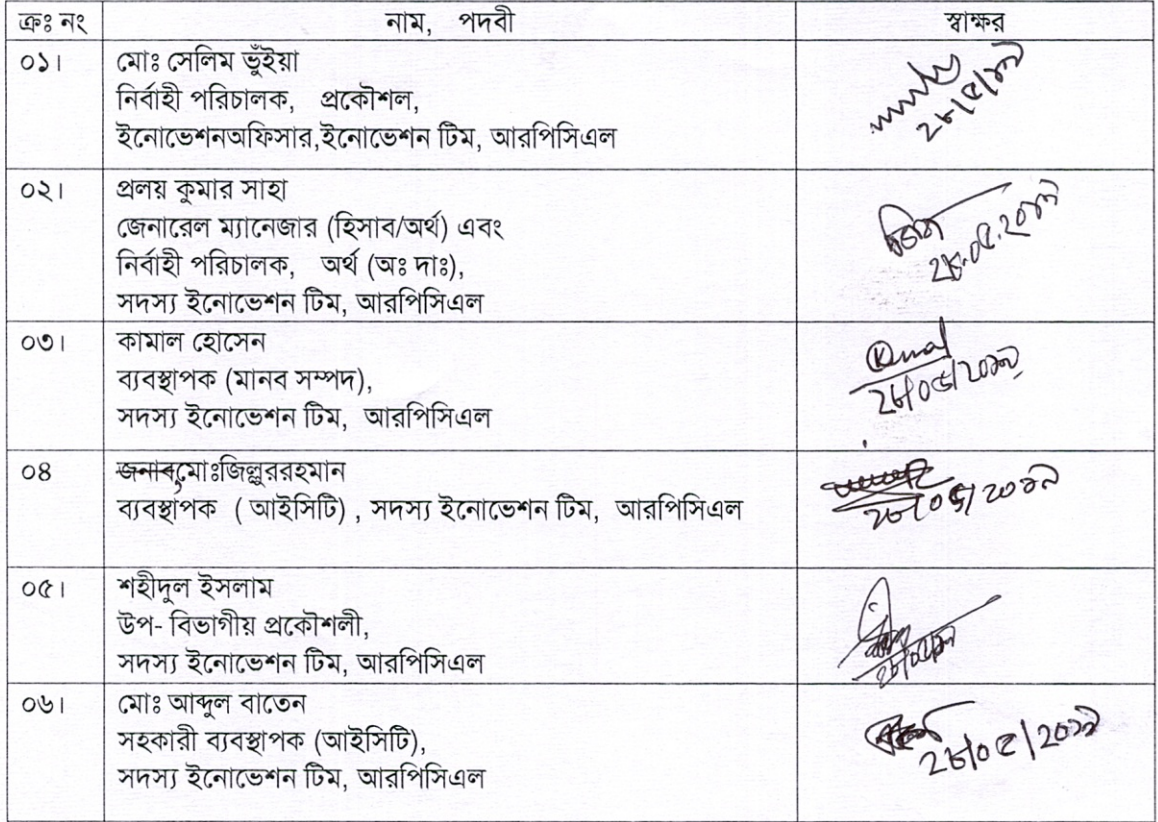 ক্রঃ নং নাম, পদবী স্বাক্ষর
০১। মোঃ সেলিম ভুঁইয়া
নির্বাহী পরিচালক, প্রকৌশল,
ইনোভেশনঅফিসার,ইনোভেশন টিম, আরপিসিএল
০২। প্রলয় কুমার সাহা
জেনারেল ম্যানেজার (হিসাব/অর্থ) এবং
নির্বাহী পরিচালক, অর্থ (অঃ দাঃ),
সদস্য ইনোভেশন টিম, আরপিসিএল
০৩। কামাল হোসেন
ব্যবস্থাপক (মানব সম্পদ),
সদস্য ইনোভেশন টিম, আরপিসিএল
২৮/০৫/২০১৯
০৪ জনাবমোঃজিল্লুররহমান
ব্যবস্থাপক ( আইসিটি) , সদস্য ইনোভেশন টিম, আরপিসিএল
২৮/০৫/২০১৯
০৫। শহীদুল ইসলাম
উপ- বিভাগীয় প্রকৌশলী,
সদস্য ইনোভেশন টিম, আরপিসিএল
০৬। মোঃ আব্দুল বাতেন
সহকারী ব্যবস্থাপক (আইসিটি),
সদস্য ইনোভেশন টিম, আরপিসিএল
২৮/০৫/২০১৯